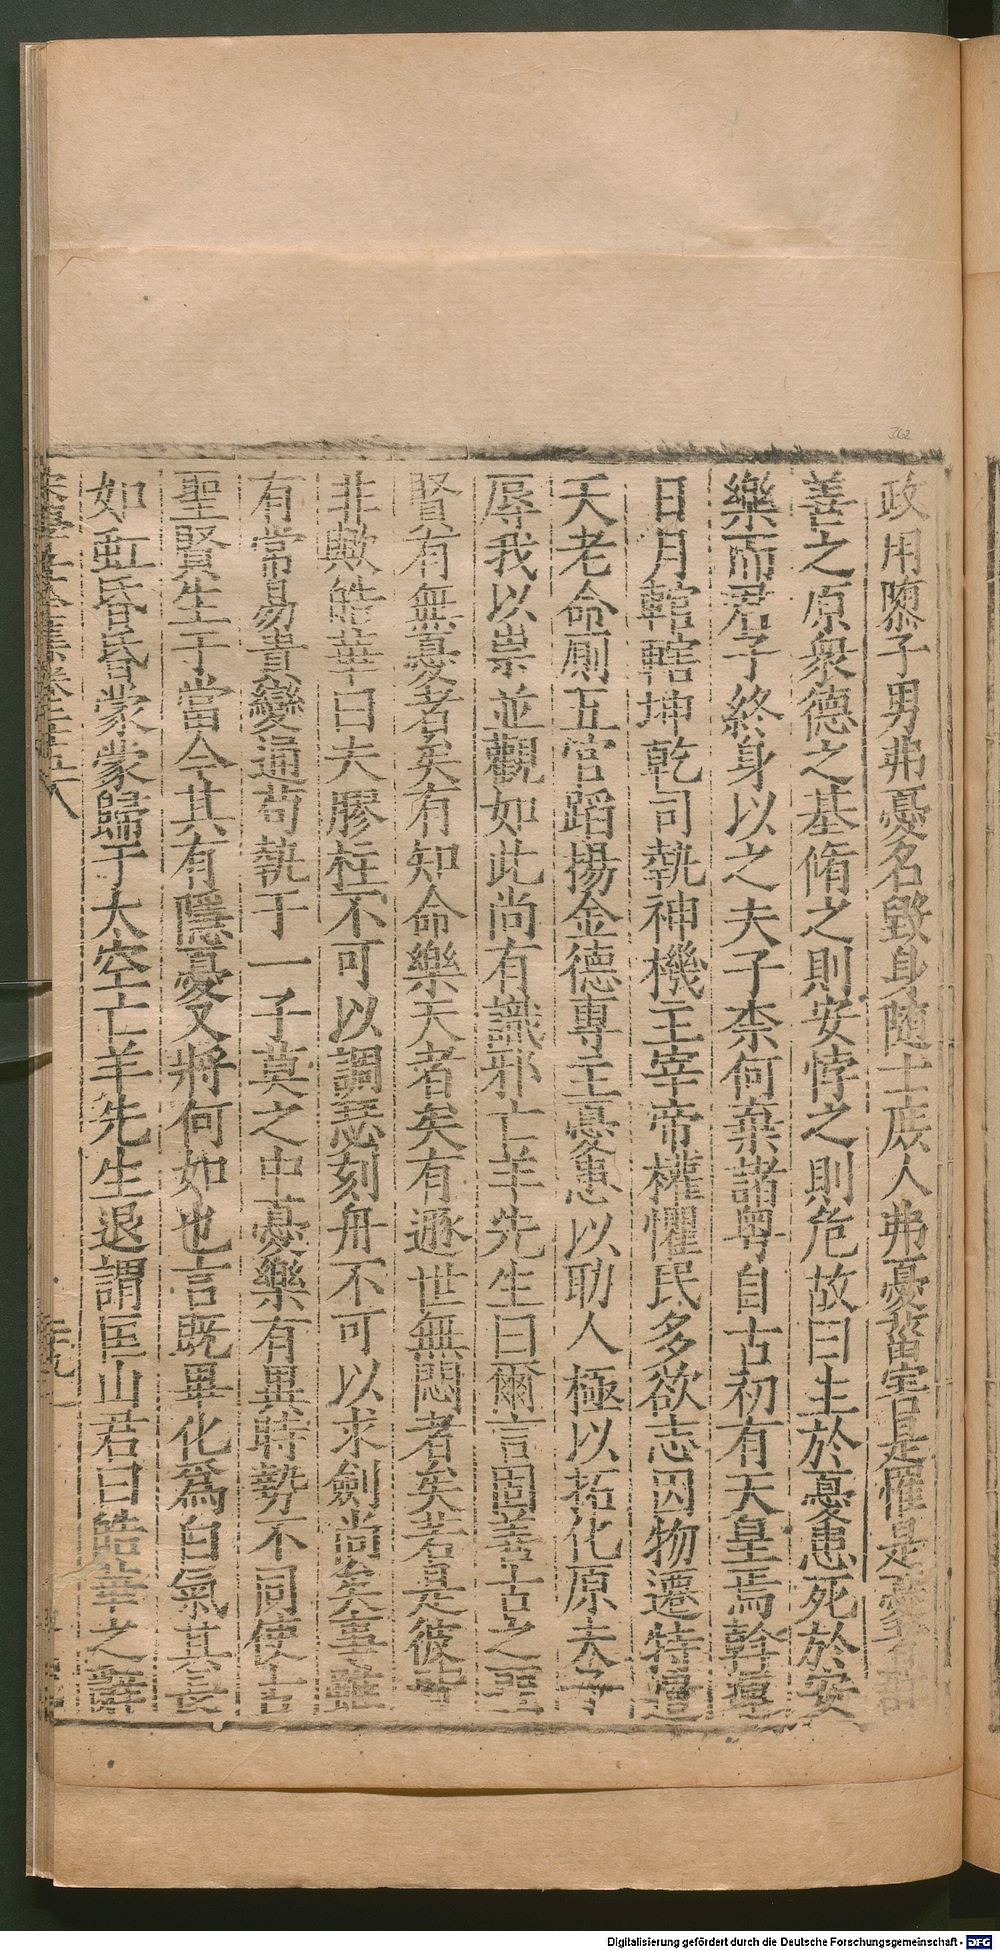 362
政用隳子男弗憂名毀身隨士庶人弗憂菑害是罹是憂者群
善之原衆德之基脩之則安悖之則危故曰生於憂患死於安
樂而君子終身以之夫子柰何棄諸粤自古初有天皇焉斡運
日月轄坤乾司執神機主宰帝權懼民多欲志因物遷特遣
天老命厠五官蹈揚金德專主憂患以助人極以拓化原夫子
辱我以祟並觀如此尚有識邪亡羊先生曰爾言固善古之聖
賢有無憂者矣有知命樂天者矣有遯世無悶者矣若是彼皆
非歟皓華曰夫膠柱不可以調瑟刻舟不可以求劍尚矣事雖
有常易貴變通苟執于一子莫之中憂樂有異時勢不同使古
聖賢生于當今其有隱憂又將何如也言既畢化爲白氣其長
如虹昏昏蒙蒙歸于太空亡羊先生退謂匡山君曰皓華之辭
宋學士全集卷二十八